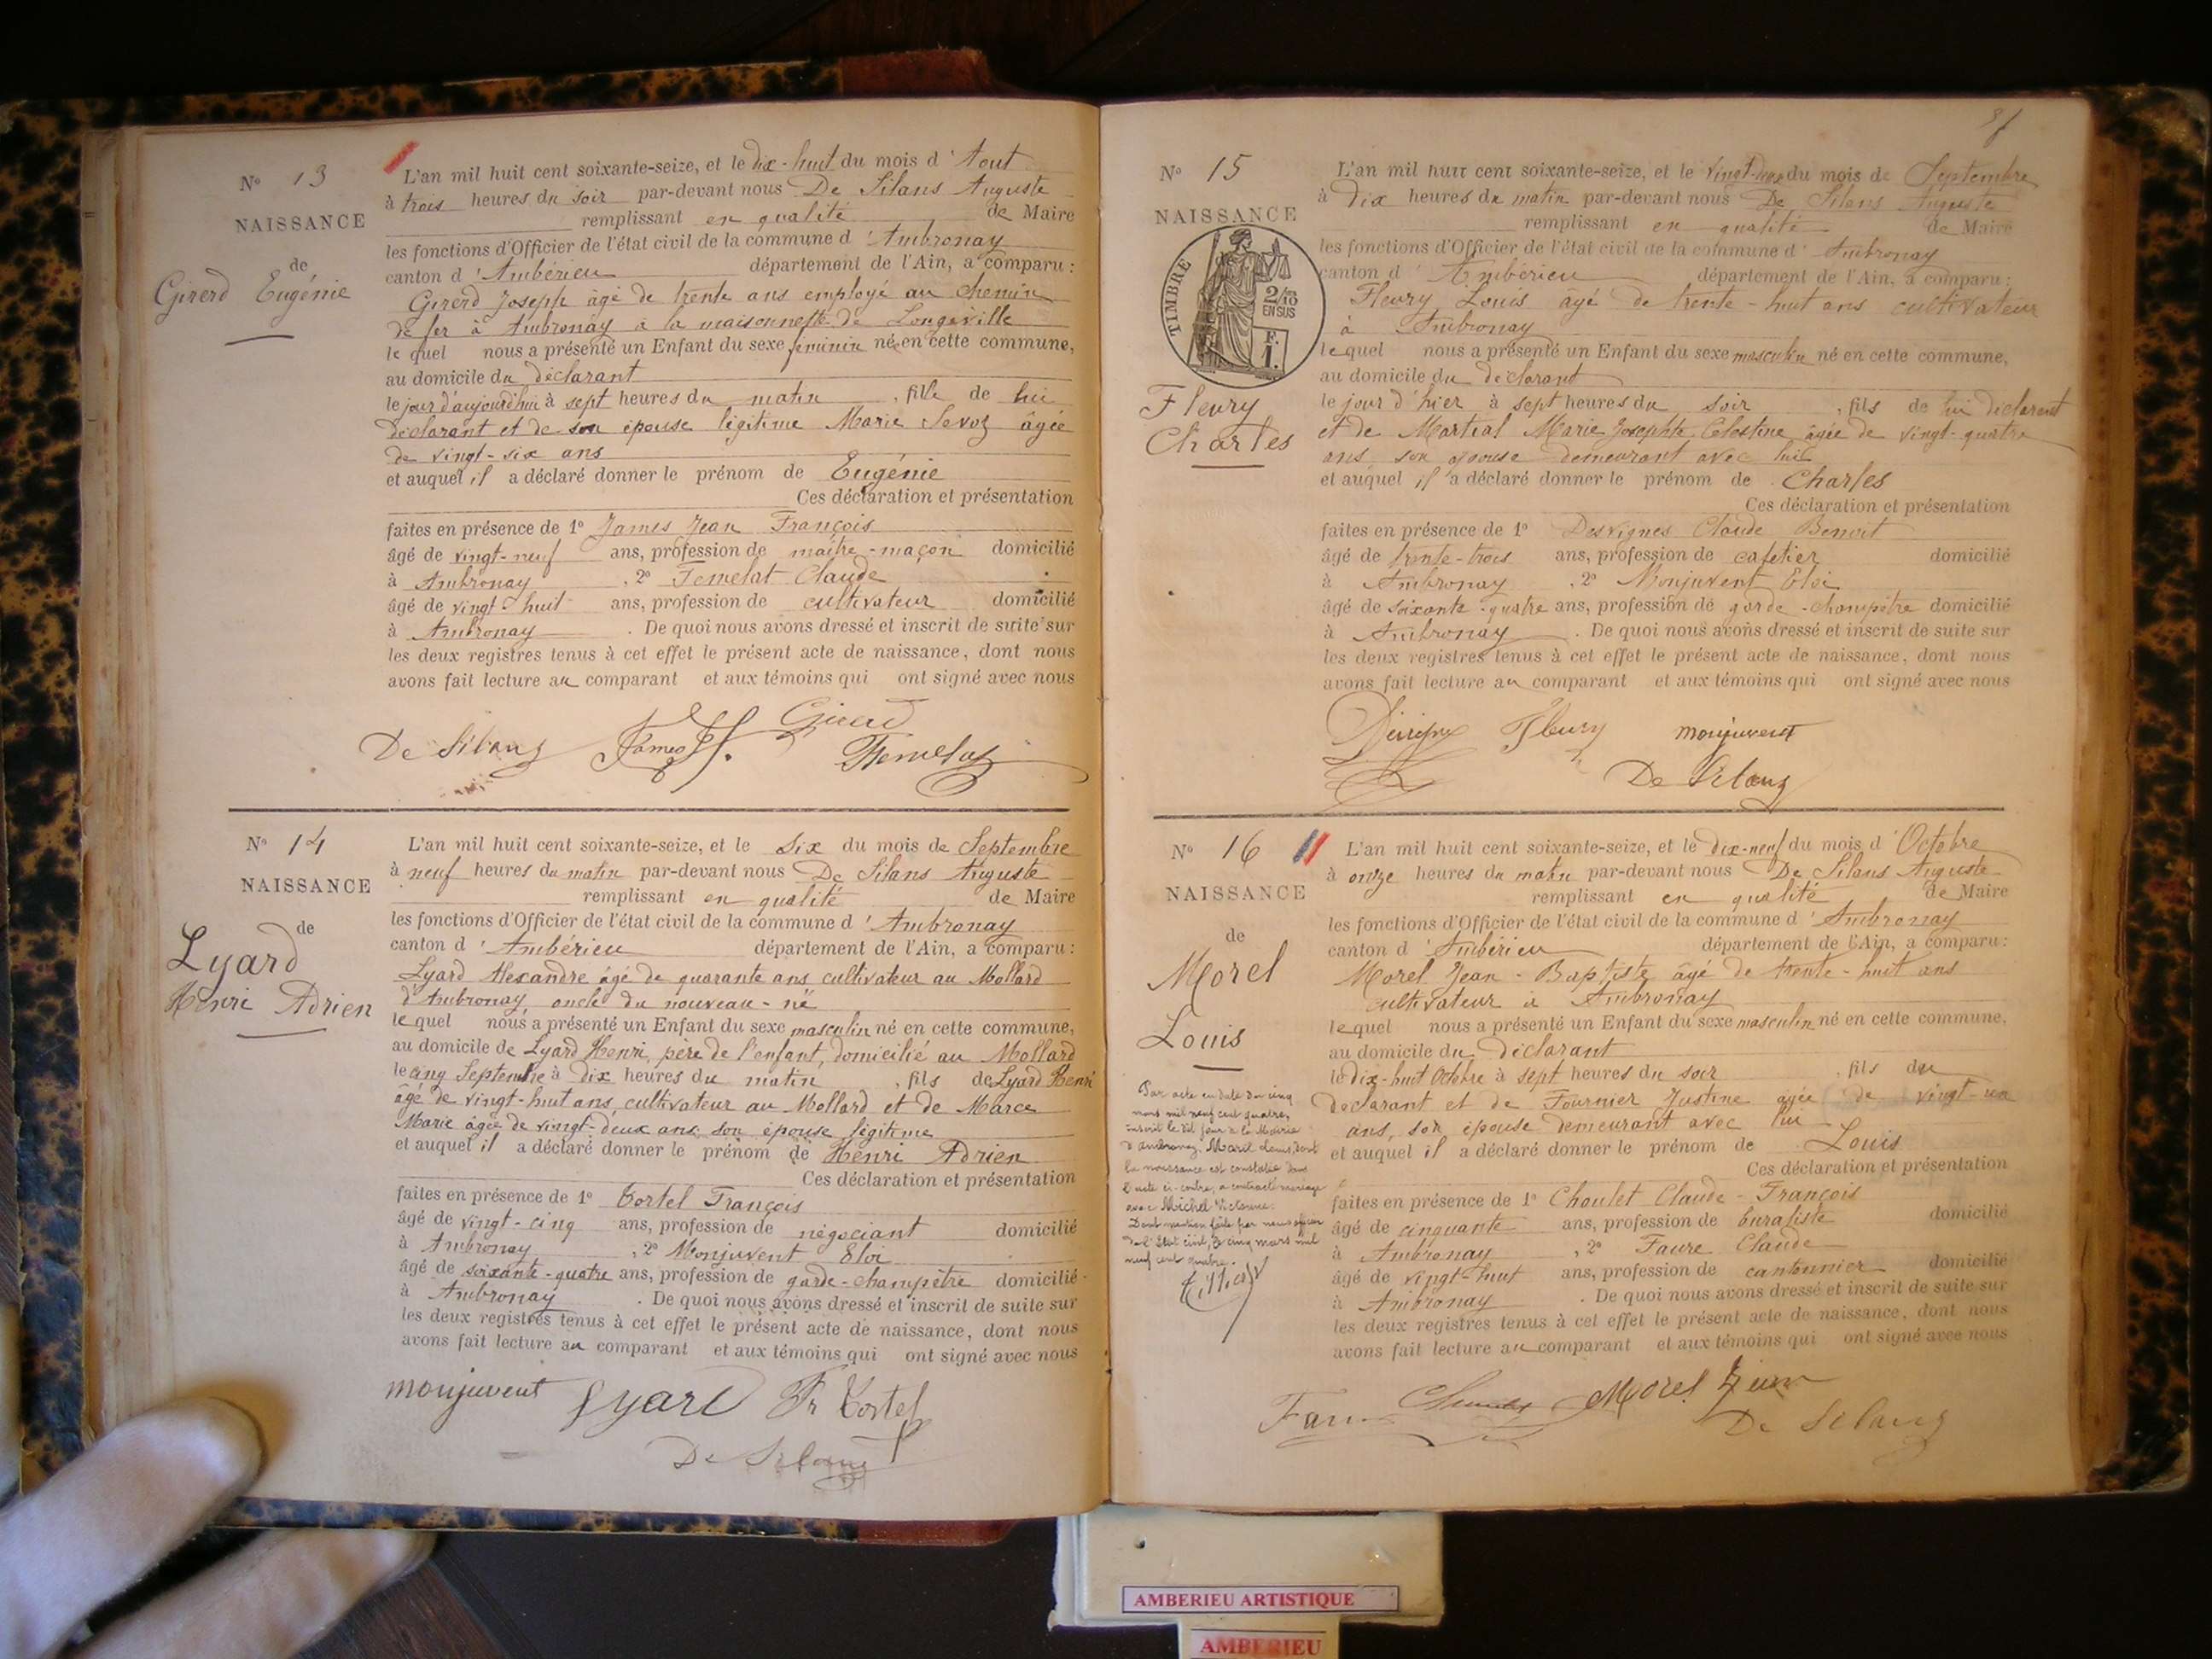 N° 13
NAISSANCE
de
Girerd Eugénie
L'an mil huit cent soixante-seize, et le dix-huit du mois d'Aout
à trois heures du soir par-devant nous De Silans Auguste
remplissant en qualité de Maire
les fonctions d'Officier de l'état civil de la commune d'Ambronay
canton d'Ambérieu département de l'Ain, a comparu :
Girerd Joseph âgé de trente ans employé au chemin
de fer à Ambronay à la maisonnette de Longeville
lequel nous a présenté un Enfant du sexe féminin né en cette commune,
au domicile du déclarant
le jour d'aujourd'hui à sept heures du matin, fille de lui
déclarant et de son épouse légitime Marie Sevoz âgée
de vingt-six ans
et auquel il a déclaré donner le prénom de Eugénie
Ces déclaration et présentation
faites en présence de 1° James Jean François
âgé de vingt-neuf ans, profession de maître-maçon domicilié
à Ambronay, 2° Femelat Claude
âgé de vingt-huit ans, profession de cultivateur domicilié
à Ambronay. De quoi nous avons dressé et inscrit de suite sur
les deux registres tenus à cet effet le présent acte de naissance, dont nous
avons fait lecture au comparant et aux témoins qui ont signé avec nous
Girerd
De Silans James Femelat
N° 14
NAISSANCE
de
Lyard
Henri Adrien
L'an mil huit cent soixante-seize, et le six du mois de Septembre
à neuf heures du matin par-devant nous De Silans Auguste
remplissant en qualité de Maire
les fonctions d'Officier de l'état civil de la commune d'Ambronay
canton d'Ambérieu département de l'Ain, a comparu :
Lyard Alexandre âgé de quarante ans cultivateur au Mollard
d'Ambronay oncle du nouveau-né
lequel nous a présenté un Enfant du sexe masculin né en cette commune,
au domicile de Lyard Henri, père de l'enfant, domicilié au Mollard
le cinq Septembre à dix heures du matin, fils de Lyard Henri
âgé de vingt-huit ans, cultivateur au Mollard et de Marce
Marie âgée de vingt-deux ans, son épouse légitime
et auquel il a déclaré donner le prénom de Henri Adrien
Ces déclaration et présentation
faites en présence de 1° Tortel François
âgé de vingt-cinq ans, profession de négociant domicilié
à Ambronay, 2° Monjuvent Eloi
âgé de soixante-quatre ans, profession de garde-champêtre domicilié
à Ambronay. De quoi nous avons dressé et inscrit de suite sur
les deux registres tenus à cet effet le présent acte de naissance, dont nous
avons fait lecture au comparant et aux témoins qui ont signé avec nous
monjuvent Lyard Fr Tortel
De Silans
N° 15
NAISSANCE
TIMBRE
2/10
EN SUS
F.
1.
Fleury
Charles
L'an mil huit cent soixante-seize, et le du mois de Septembre
à dix heures du matin par-devant nous De Silans Auguste
remplissant en qualité de Maire
les fonctions d'Officier de l'état civil de la commune d'Ambronay
canton d'Ambérieu département de l'Ain, a comparu :
Fleury Louis âgé de trente-huit ans cultivateur
à Ambronay
lequel nous a présenté un Enfant du sexe masculin né en cette commune,
au domicile du déclarant
le jour d'hier à sept heures du soir, fils de lui déclarant
et de Martial Marie Josephte Célestine âgée de vingt-quatre
ans son épouse demeurant avec lui
et auquel il a déclaré donner le prénom de Charles
Ces déclaration et présentation
faites en présence de 1° Desvignes Claude Benoit
âgé de trente-trois ans, profession de cafetier domicilié
à Ambronay, 2° Monjuvent Eloi
âgé de soixante-quatre ans, profession de garde-champêtre domicilié
à Ambronay. De quoi nous avons dressé et inscrit de suite sur
les deux registres tenus à cet effet le présent acte de naissance, dont nous
avons fait lecture au comparant et aux témoins qui ont signé avec nous
Fleury monjuvent
De Silans
N° 16
NAISSANCE
de
Morel
Louis
Par acte en date du cinq
mars mil neuf cent quatre,
inscrit le dit jour à la Mairie
d'Ambronay, Morel Louis, dont
la naissance est constatée dans
l'acte ci-contre, a contracté mariage
avec Michel Victorine.
Dont mention faite par nous officier
de l'Etat civil, le cinq mars mil
neuf cent quatre.
L'an mil huit cent soixante-seize, et le dix-neuf du mois d'Octobre
à onze heures du matin par-devant nous De Silans Auguste
remplissant en qualité de Maire
les fonctions d'Officier de l'état civil de la commune d'Ambronay
canton d'Ambérieu département de l'Ain, a comparu :
Morel Jean-Baptiste âgé de trente-huit ans
cultivateur à Ambronay
lequel nous a présenté un Enfant du sexe masculin né en cette commune,
au domicile du déclarant
le dix-huit Octobre à sept heures du soir, fils du
déclarant et de Fournier Justine âgée de vingt-un
ans, son épouse demeurant avec lui
et auquel il a déclaré donner le prénom de Louis
Ces déclaration et présentation
faites en présence de 1° Choulet Claude-François
âgé de cinquante ans, profession de buraliste domicilié
à Ambronay, 2° Faure Claude
âgé de vingt-huit ans, profession de cantonnier domicilié
à Ambronay. De quoi nous avons dressé et inscrit de suite sur
les deux registres tenus à cet effet le présent acte de naissance, dont nous
avons fait lecture au comparant et aux témoins qui ont signé avec nous
Morel
De Silans
AMBERIEU ARTISTIQUE
AMBERIEU